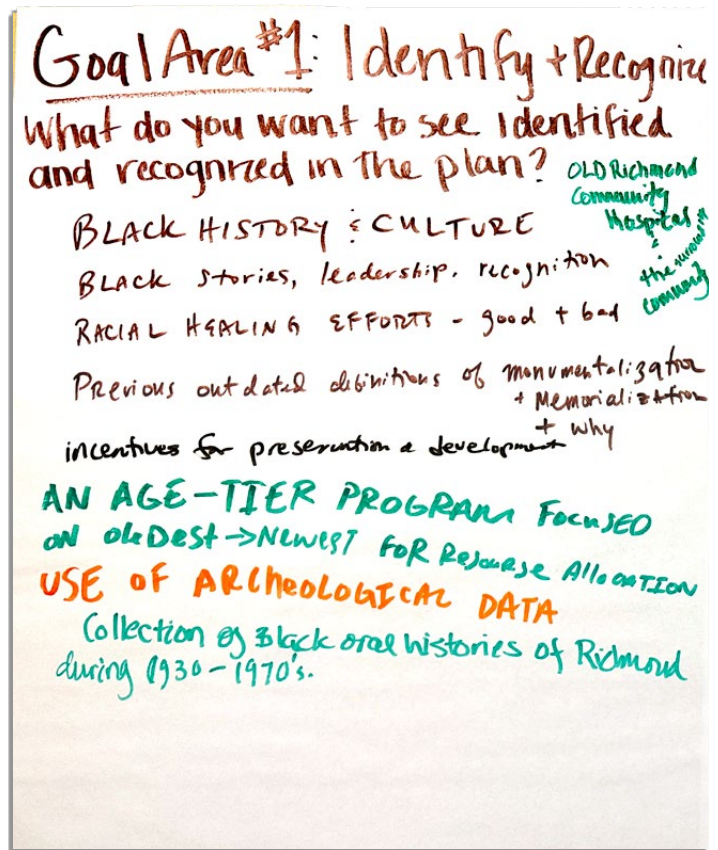 Goal Area #1: Identify + Recognize
What do you want to see Identified
and recognized in the plan?
OLD Richmond
Community
Hospital
&
the surrounding
community
BLACK HISTORY & CULTURE
BLACK stories, leadership, recognition
RACIAL HEALING EFFORTS - good + bad
Previous outdated definitions of monumentalization
+ Memorialization
+ why
incentives for preservation & development
AN AGE-TIER PROGRAM FOCUSED
ON OLDEST → NEWEST FOR Resourse Allocation
USE OF ARCHEOLOGICAL DATA
Collection of Black oral histories of Richmond
during 1930-1970's.